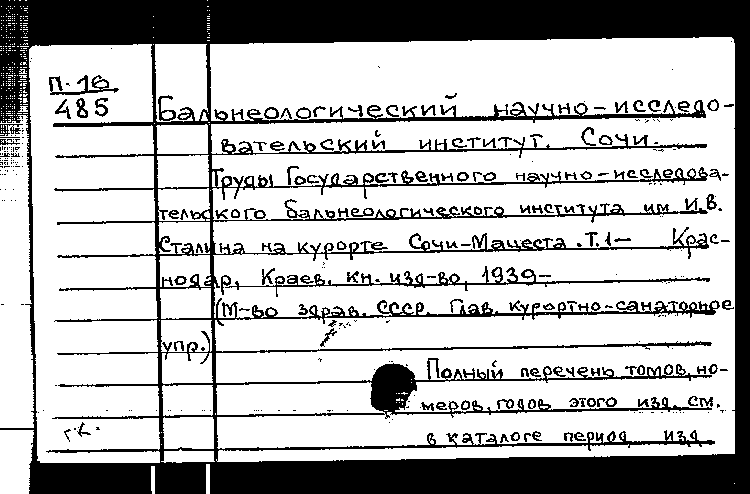 П-16
485
Бальнеологический научно-исследо-
вательский институт. Сочи.
Труды Государственного научно-исследова-
тельского бальнеологического института им. И.В.
Сталина на курорте Сочи-Мацеста. Т.1– Крас-
нодар, Краев. кн. изд-во, 1939–
(М-во здрав. СССР. Глав. курортно-санаторное
упр.)
Полный перечень томов, но-
меров, годов этого изд. см.
в каталоге период. изд.
г.к.